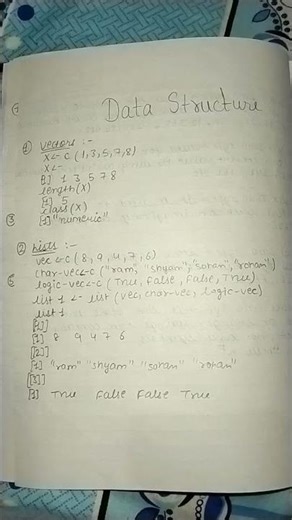 Data Structure
① vectors :-
x <- c (1,3,5,7,8)
x <-
[1] 1 3 5 7 8
length(x)
[1] 5
class(x)
③ [1] "numeric"
② Lists :-
vec <- c (8, 9, 4, 7, 6)
char-vec <- c ("ram", "shyam", "sohan", "rohan")
logic-vec <- c (True, False, False, True)
list 1 <- list (vec, char-vec, logic-vec)
list 1
[[1]]
[1] 8 9 4 7 6
[[2]]
[1] "ram" "shyam" "sohan" "rohan"
[[3]]
[1] True False False True